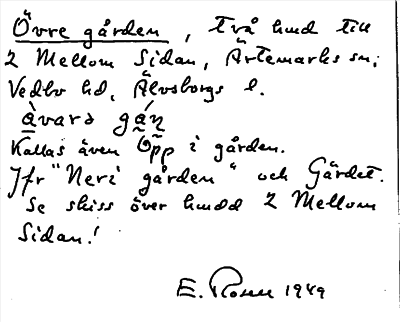 Övre gården, två hmd till
2 Mellom Sidan, Ärtemarks sn;
Vedbo hd, Älvsborgs l.
àvarə gán
Kallas även Opp i gården.
Jfr "Neri gården" och Gärdet.
Se skiss över hmdd 2 Mellom
Sidan!
E. 1949